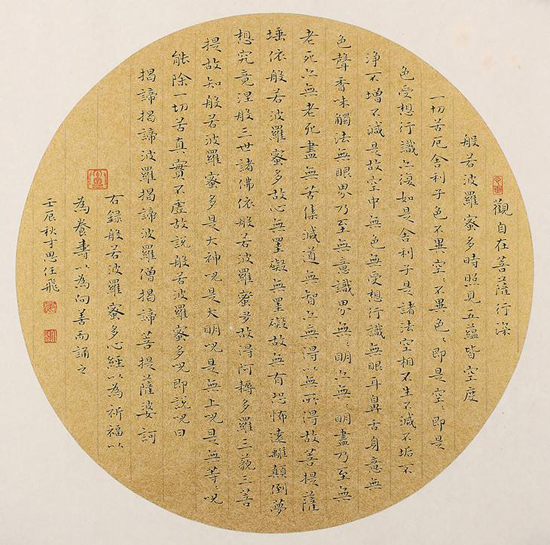 觀自在菩薩行深
般若波羅蜜多時照見五蘊皆空度
一切苦厄舍利子色不異空〻不異色〻即是空〻即是
色受想行識亦復如是舍利子是諸法空相不生不滅不垢不
淨不增不減是故空中無色無受想行識無眼耳鼻舌身意無
色聲香味觸法無眼界乃至無意識界無〻明亦無〻明盡乃至無
老死亦無老死盡無苦集滅道無智亦無得以無所得故菩提薩
埵依般若波羅蜜多故心無罣礙無罣礙故無有恐怖遠離顛倒夢
想究竟涅般三世諸佛依般若波羅蜜多故得阿耨多羅三藐三菩
提故知般若波羅蜜多是大神咒是大明咒是無上咒是無等〻咒
能除一切苦真實不虛故說般若波羅蜜多咒即說咒曰
揭諦揭諦波羅揭諦波羅僧揭諦菩提薩婆訶
右錄般若波羅蜜多心經以為祈福以
為養壽以為向善而誦之
壬辰秋思任飛